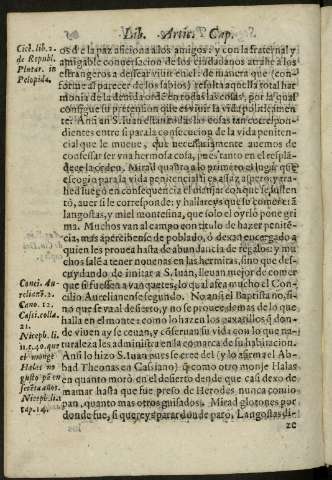 Lib. Artic. Cap.
Cice. lib. 2.
de Republ.
Plutar. in
Pelopida.
os d e la paz aficiona a los amigos: y con la fraternal y
amigable conuersacion de los ciudadanos atrahe a los
estrangeros a dessear viuir en el: de manera que (con-
forme al parecer de los sabios) resulta aquella total har
monia de la deuida orden en todas las cosas, por la qual
consigue su pretension que es viuir la vida politicamen
te. Ansi an S. Iuan estan todas las cosas tan correspon-
dientes entre si para la consecucion de la vida peniten-
cial que le mueue, que necessariamente auemos de
confessar ser vna hermosa cosa, pues tanto en el resplã-
dece la orden. Mirad quanto a lo primero el lugar que
escogio para la vida penitencial si es assaz aspero, y tra-
hed luego en consequencia el manjar con que se susten
tó, a uer si le corresponde: y hallareys que su comer era
langostas, y miel montesina, que solo el oyrlo pone gri
ma. Muchos van al campo con titulo de hazer penitẽ-
cia, mas aperibense de poblado, ó dexan encargado a
quien les prouea hasta de abundancia de regalos: y mu
chos salẽ a tener nouenas en las hermitas, sino que des-
cuydando de imitar a S. Iuan, lleuan mejor de comer
que si fuessen a vanquetes, lo qual afea mucho el Con-
cilio Aurelianense segundo. No ansi el Baptista no, si-
no que se va al desierto, y no se prouee demas de lo que
halla en el monte: como lo hazen los paxarillos q̃ don-
de viuen ay se ceuan, y cõseruan su vida con lo que na-
turaleza les administra en la comarca de su habitacion.
Ansi lo hizo S. Iuan pues se cree del (y lo afirma el Ab-
bad Theonas en Cassiano) q̃ como otro monge Halas
en quanto moró en el desierto dende que casi dexo de
mamar hasta que fue preso de Herodes nunca comio
pan, quanto mas otros guisados. Mirad glotones por
donde fue, si quereys parar donde paró. Langostas di-
ze
Conci. Au-
relien s. 2.
Cano. 12.
Cassi. colla.
21.
Niceph. li.
11. c. 40. que
el monge
Halas no
gustò pã en
setẽta años.
Niceph. li. 1
cap. 14.